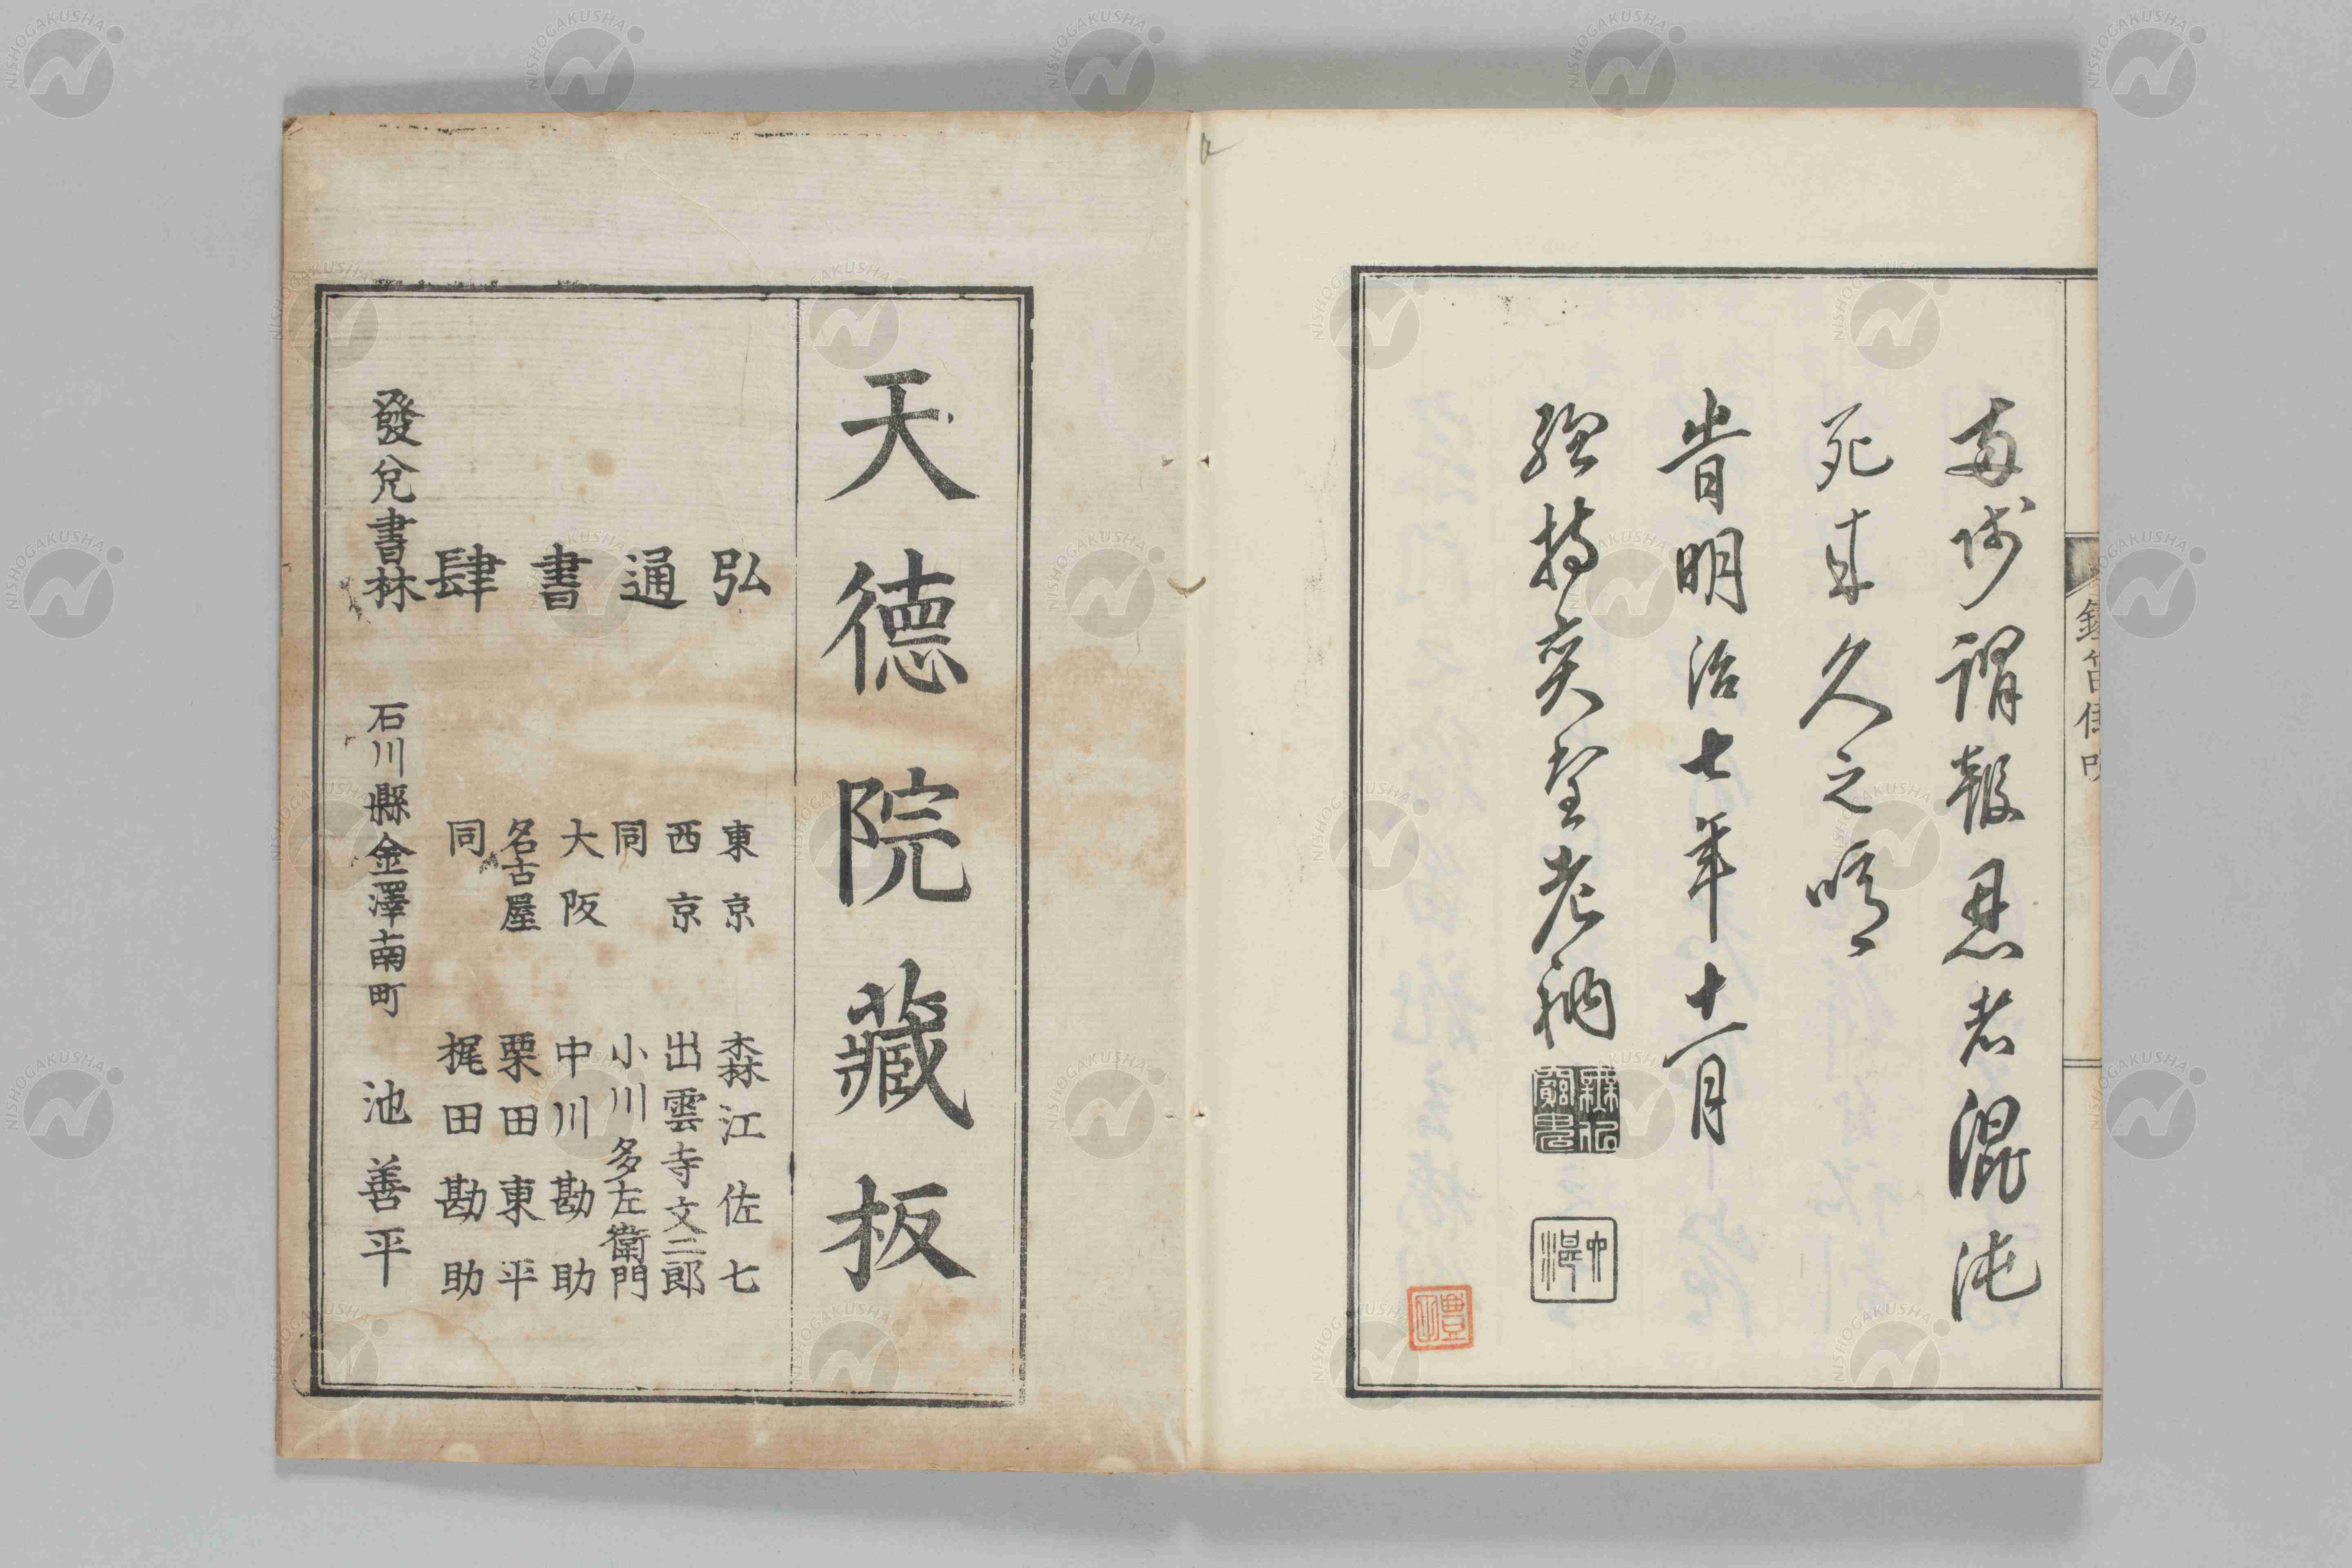 謂報恩者混沌
死来久之
旹明治七年十一月
総持奕堂老衲
天德院藏板
弘通書肆
東京 森江佐七
西京 出雲寺文二郎
同 小川多左衛門
大阪 中川勘助
名古屋 栗田東平
同 梶田勘助
發兌書林 石川縣金澤南町 池善平
NISHOGAKUSHA